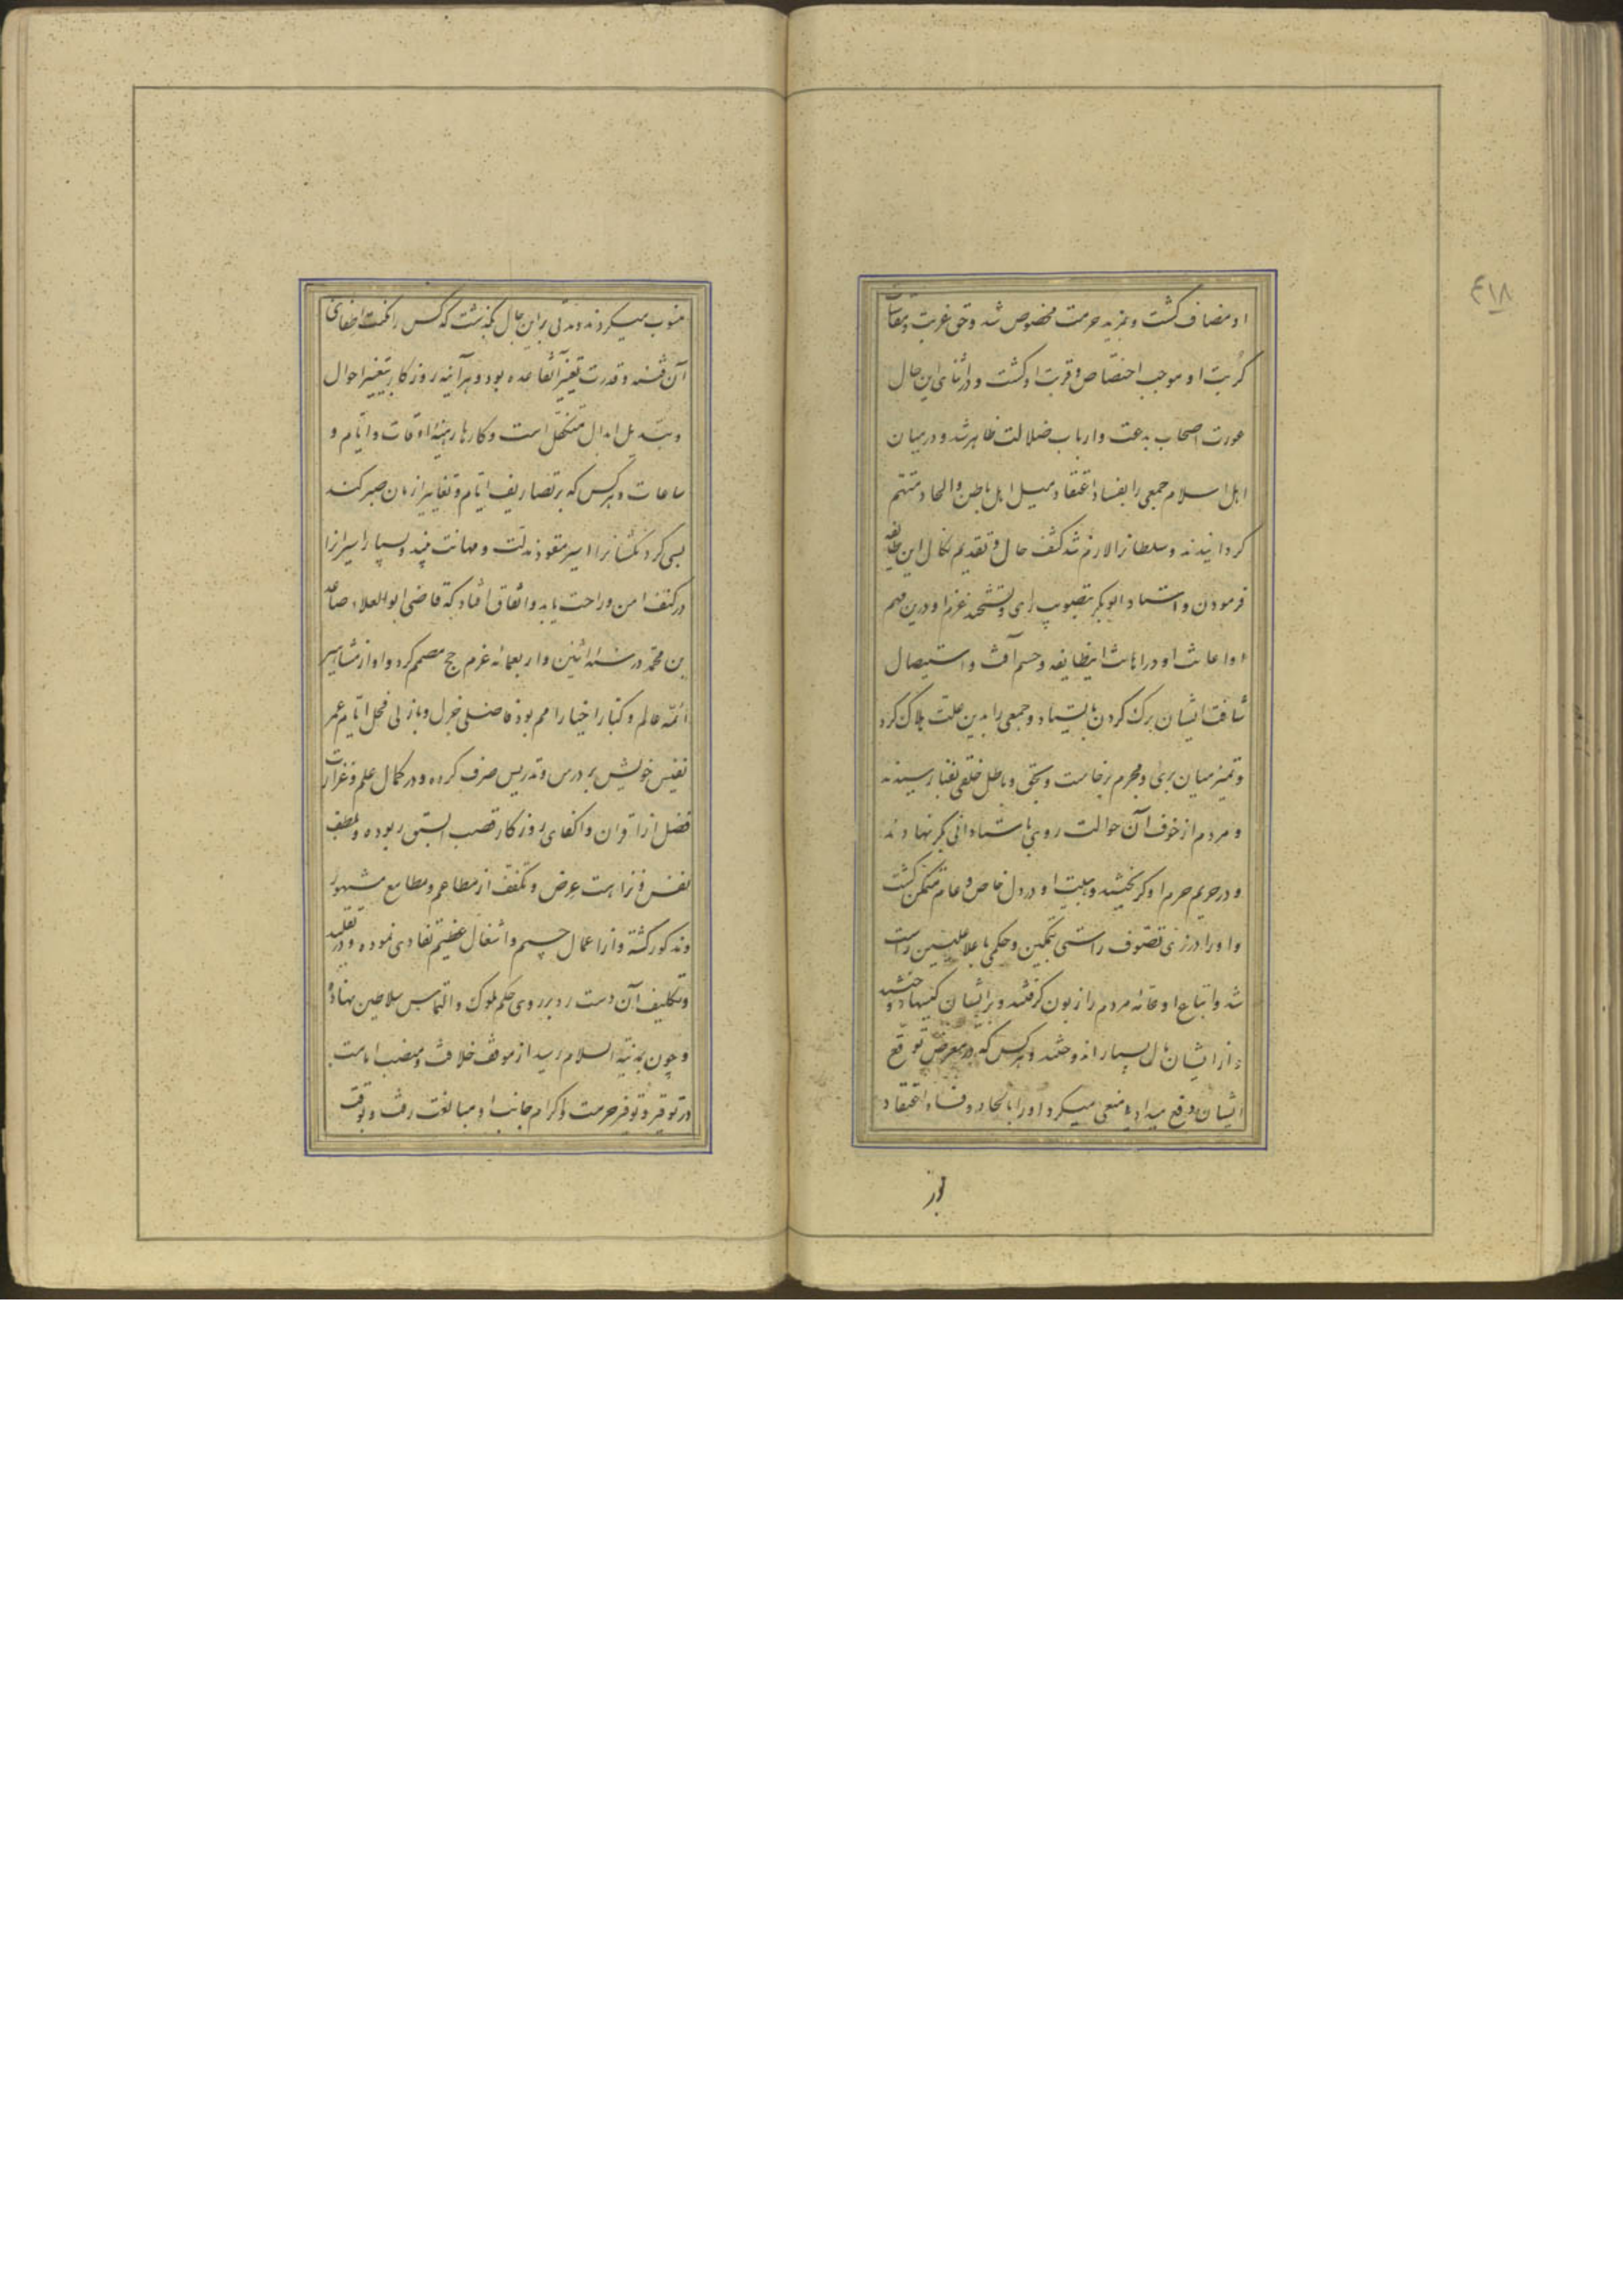 ۴۱۸
او مضاف کشت و بمزید حرمت مخصوص شد و حق غربت و مقاسات
کربت او موجب اختصاص و قربت او کشت و در اثنای این حال
عورت اصحاب بدعت و ارباب ضلالت ظاهر شد و در میان
اهل اسلام جمعی را بفساد اعتقاد و میل اهل باطن و الحاد متهم
کردانیدند و سلطانرا لازم شد کشف حال و تقدیم نکال این طایفه
فرمودن و استاد ابوبکر تصویب رای و تشحیذ عزم او درین مهم
و اعانت او در اهانت اینطایفه و حسم آفت و استیصال
شافت ایشان برک کردن بایستاد و جمعی را بدین علت هلاک کرد
و تمیز میان بری و مجرم برخاست و بحق و باطل خلقی بفنا رسیدند
و مردم از خوف آن حوالت روی باستاد ابی بکر نهادند
و در حریم حرم او کریختند و هیبت او در دل خاص و عام متمکن کشت
و او را در زی تصوف راستی بتمکین و حکمی باعلا علیین راست
شد و اتباع او عامه مردم را زبون کرفتند و بر ایشان کیسها دوختند
و از ایشان مال بسیار اندوختند و هر کس که در معرض توقع
ایشان دفع میداد و منعی میکرد او را بالحاد و فساد اعتقاد
منسوب میکردند و مدتی بر این حال بکذشت که کس را مکنت اطفای
آن فتنه و قدرت تغییر آنقاعده بود و هر آینه روزکار بتغییر احوال
و تبدیل ابدال متکفل است و کارها رهینهٔ اوقات و ایام و
ساعات و هر کس که بر تصاریف ایام و تغاییر ازمان صبر کند
بسی کردنکشانرا اسیر مقود مذلت و مهانت بیند و بسیار اسیرانرا
در کنف امن و راحت یابد و اتفاق افتاد که قاضی ابو العلاء صاعد
بن محمد در سنه اثنین و اربعمائه عزم حج مصمم کرد و او از مشاهیر
ائمه عالم و کبار اخیار امم بود فاضلی جزل و بازلی فحل ایام عمر
نفیس خویش بر درس و تدریس صرف کرده و در کمال علم و غزارت
فضل از اقران و اکفای روزکار قصب السبق ربوده و بلطف
نفس و نزاهت عرض و تعفف از مطاعم و مطامع مشهور
و مذکور کشته و از اعمال جسیم و اشغال عظیم تفادی نموده و در تقلید
و تکلیف آن دست رد بر روی حکم ملوک و التماس سلاطین نهاده
و چون بمدینة السلام رسید از موقف خلافت و منصب امامت
در توقیر و توفر حرمت و اکرام جانب او مبالغت رفت و بوقت